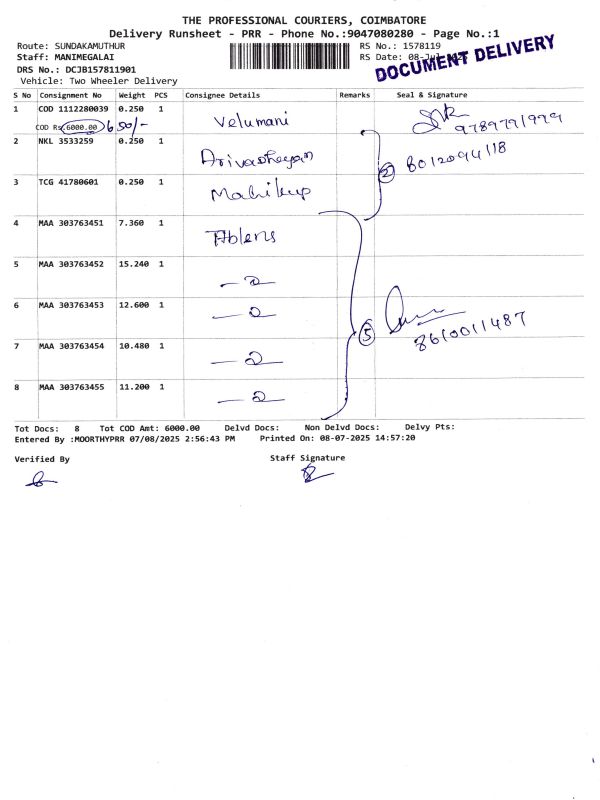 THE PROFESSIONAL COURIERS, COIMBATORE
Delivery Runsheet - PRR - Phone No.:9047080280 - Page No.:1
Route: SUNDAKAMUTHUR RS No.: 1578119
Staff: MANIMEGALAI RS Date: 08-Jul-2025
DOCUMENT DELIVERY
DRS No.: DCJB157811901
Vehicle: Two Wheeler Delivery
S No Consignment No Weight PCS Consignee Details Remarks Seal & Signature
1 COD 1112280039 0.250 1 Velumani
COD Rs 6000.00 650/- 9789791999
2 NKL 3533259 0.250 1 ② 8012094118
3 TCG 41780601 0.250 1
4 MAA 303763451 7.360 1
5 MAA 303763452 15.240 1
6 MAA 303763453 12.600 1
⑤ 8610011487
7 MAA 303763454 10.480 1
8 MAA 303763455 11.200 1
Tot Docs: 8 Tot COD Amt: 6000.00 Delvd Docs: Non Delvd Docs: Delvy Pts:
Entered By :MOORTHYPRR 07/08/2025 2:56:43 PM Printed On: 08-07-2025 14:57:20
Verified By Staff Signature